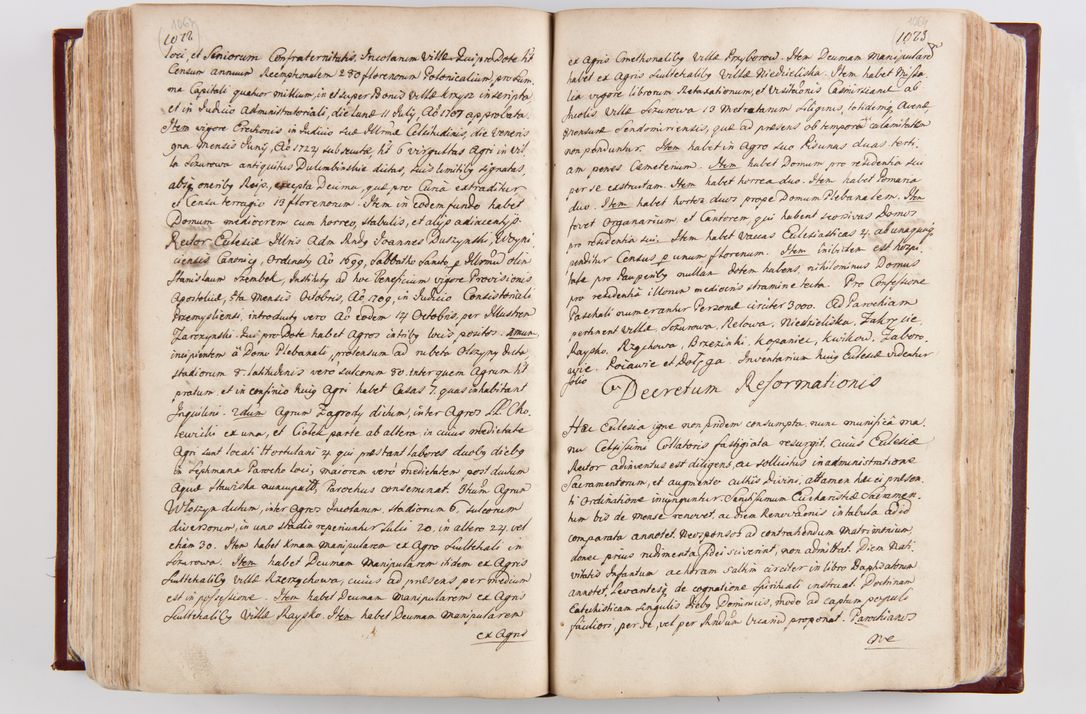 1067
1022
loci, et Seniorum Confraternitatis. Incolarum Villæ Qui pro Dote ht
Censum annuum Reemptionalem 280 florenorum Polonicalium, pro sum
ma Capitali quatuor millium, in et super Bonis Villæ inscripta
et in Judicio Administratoriali, die Lunæ 11 July, Ao 1707 approbata.
Item vigore Erectionis in Judicio suæ Illrmæ Celsitudinis, die Veneris
gna mensis Juny, Ao 1722 subsecutæ, ht 6 virgultas Agri in Vil
la Szurowa antiquitus Dulembinskie dictas, suis limitibq signatas,
abiq oneribq Reip, excepta Decima, quæ pro Cura extraditur
et Censu terragio 13 florenorum. Item in eodem fundo habet
Domum mediocrem cum horreo, stabulis, et alijs adiacentijs.
Rector Ecclesiæ Illris Adm Rndq Joannes Duszynski, Woyni
ciensis Canonicq, Ordinatq Ao 1699, Sabbatho Sancto p Illrmū olim
Stanislaum Szembek, Institutq ad hoc Beneficium vigore Provisionis
Apostolicæ, 8ta Mensis Octobris, Ao 1709, in Judicio Consistoriali
Præmysliensi, introductq vero Ao eodem 14 Octobris, per Illustrem
Zarczynski. Qui pro Dote habet Agros infribq locis positos. Imum
incipientem â Domo Plebanali, protensum ad rubeta Olszyny dicta,
stadiorum 8. latitudinis vero sulcorum 80. inter quem Agrum ht
pratum et in confinio huiq Agri habet Casas 7. quas inhabitant
Inquilini. 2dum Agrum Zagrody dictum, inter Agros Cho
tewicki ex una, et Ciołek parte ab altera, in cuius medietate
Agri sunt locati Hortulani 4 qui præstant labores duobq diebq
in Septimana Parocho loci, maiorem vero medietatem post ductum
Aquæ Stawiska nuncupatt, Parochus conseminat. 3tium Agrum
Włoszyn dictum, inter Agros Incolarum, stadiorum 6. sulcorum
diversorum, in uno stadio reperiuntur sulci 20. in altero 24 vel
etiam 30. Item habet Xmam manipularem ex Agro Scultetiali in
Szurowa. Item habet Decimam Manipularem itidem ex Agris
Scultetialibq Villæ Rzerzychowa, cuius ad præsens per medium
est in possessione. Item habet Decimam manipularem ex Agris
Scultetialibq Villæ Raysko. Item habet Decimam manipularem
ex Agris
1064
1023
ex Agris Cmethonalibq Villæ Przyborow. Item Decimam Manipularē
habet ex Agris Scultetialibq Villæ Niedzieliska. Item habet Missa
lia vigore librorum Retaxationum, et Visitaonis Casimirsianæ ab
Incolis Villæ Szurowa 13 Metretarum siliginis, totidemq Avenæ,
mensuræ Sendomiriensis, quæ ad præsens ob temporū calamitatem
non penduntur. Item habet in Agro suo Piscinas duas terti
am penes Cemeterium. Item habet Domum pro residentia sui
per se extructam. Item habet horrea duo. Item habet Pomaria
duo. Item habet hortos duos prope Domum Plebanalem. Item
fovet Organarium et Cantorem qui habent seorsivas Domos
pro residentia sui. Item habet Vaccas Ecclesiasticas 4. ab unaquaq
penditur Census p unum florenum. Item Inibidem est hospi
tale pro Pauperibq nullam dotem habens, nihilominus Domus
pro residentia illorum mediocris stramine tecta. Pro Confessione
Paschali numerantur Personæ circiter 3000. Ad Parochiam
pertinent Villæ Szurowa, Relowa, Niedzieliska, Zakrzcie
Raysko, Rzychowa, Brzezinki. Kopaniec, Kwikow, Zaboro,
wie. Pojawie et Dołęga. Inventarium huiq Ecclesiæ videntur
folio
Decretum Reformationis
Hæc Ecclesia igne non pridem consumpta, nunc munificâ ma,
nu Celsissimi Collatoris fastigiata resurgit, cuius Ecclesiæ
Rector adinventus est diligens, ac sollicitus in administratione
Sacramentorum, et augmento cultûs Divini, attamen hæc ei præsen
ti Ordinatione iniunguntur. Sanctissimum Eucharistiæ Sacramen,
tum bis de mense renovet, ac diem Renovaonis in tabula ad id
comparata annotet. Neosponsos ad contrahendum Matrimonium,
donec prius rudimenta fidei sciverint, non admittat. Diem Nati,
vitatis Infantum ac horam saltim circiter in libro Baptisatorum
annotet, Levantesq de cognatione spirituali instruat. Doctrinam
Catechisticam singulis diebq Dominicis, modo ad captum populi
faciliori, per se, vel per Rndum Vicariū proponat. Parochianos
ne